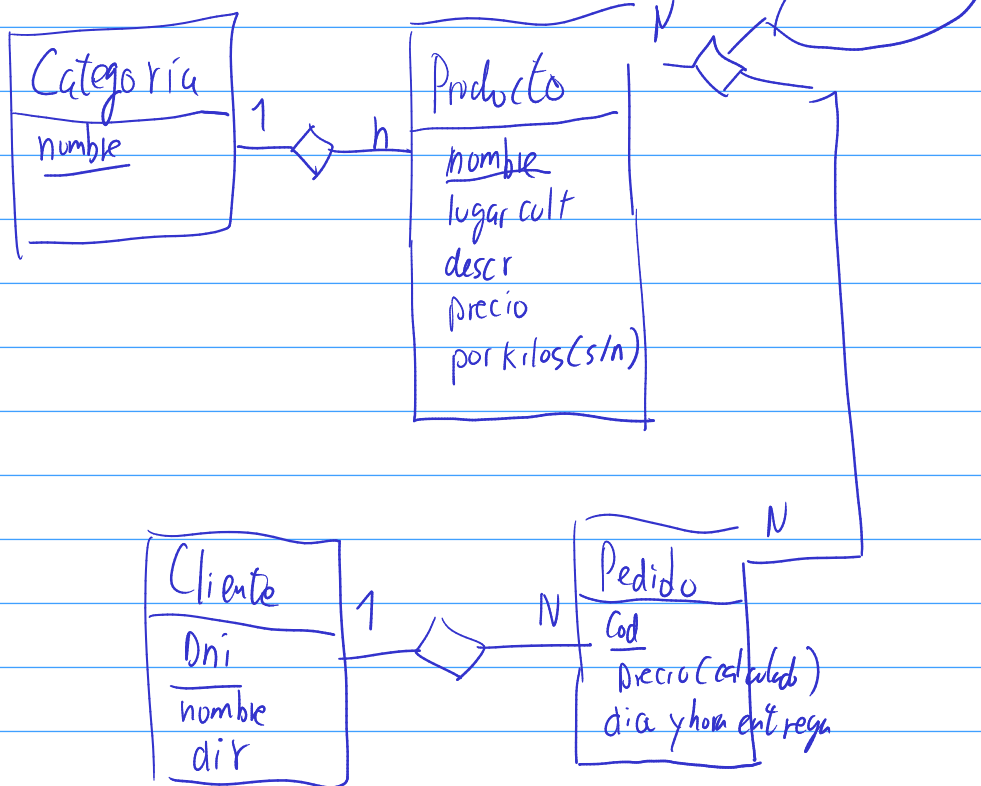 Categoría
nombre
1
n
Producto
nombre
lugar cult
descr
precio
por kilos (s/n)
N
Cliente
Dni
nombre
dir
1
N
Pedido
Cod
precio (calculado)
dia y hora entrega
N